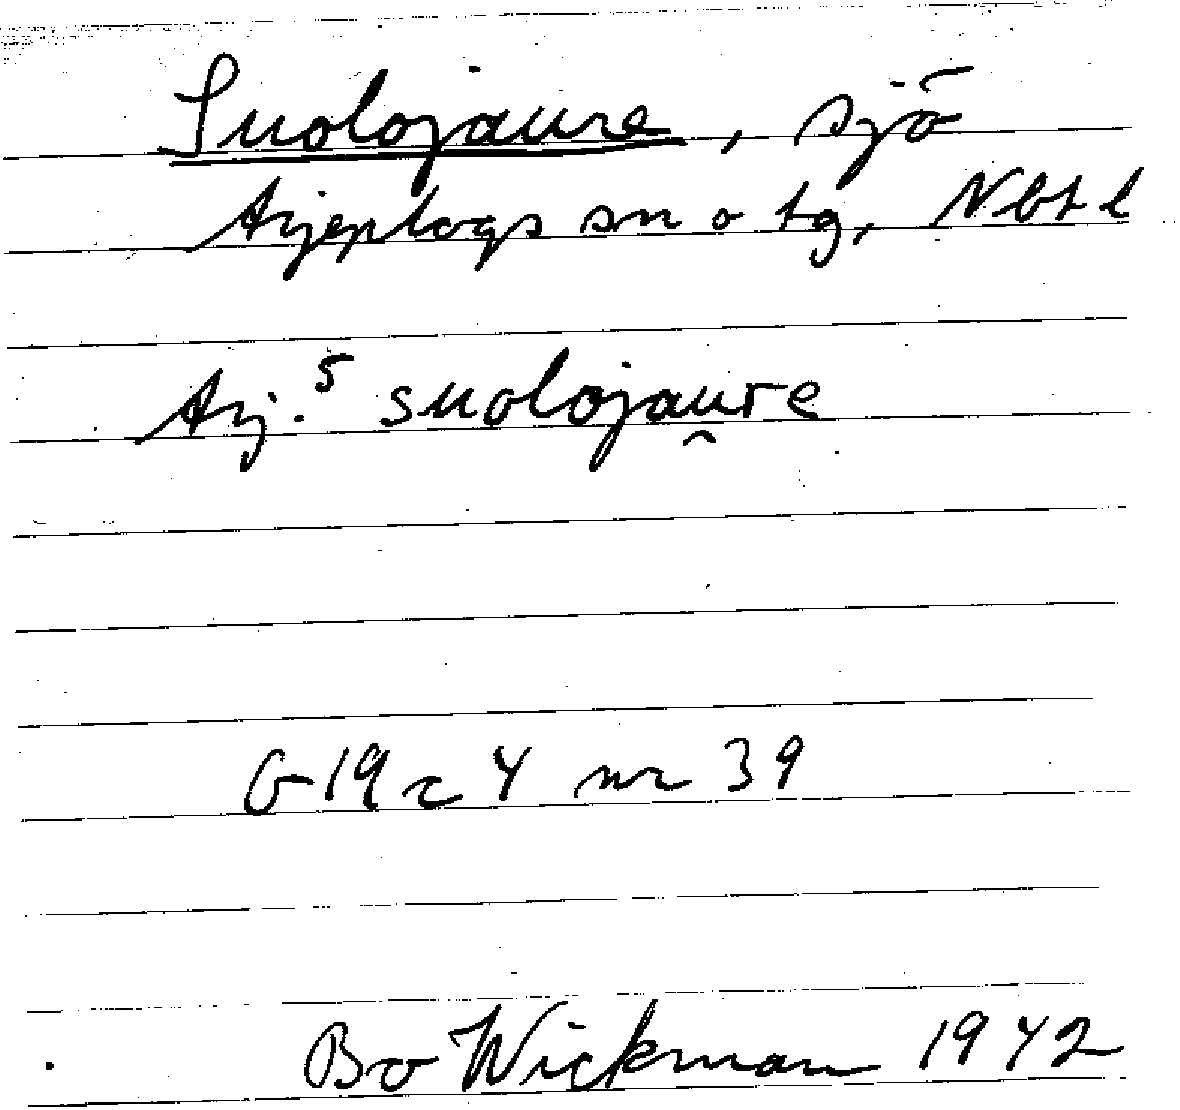 Suolojaure, sjö
Arjeplogs sn o tg, Nbtl
Arj.⁵ suolojau̯re
G 19 c 4 nr 39
Bo Wickman 1942